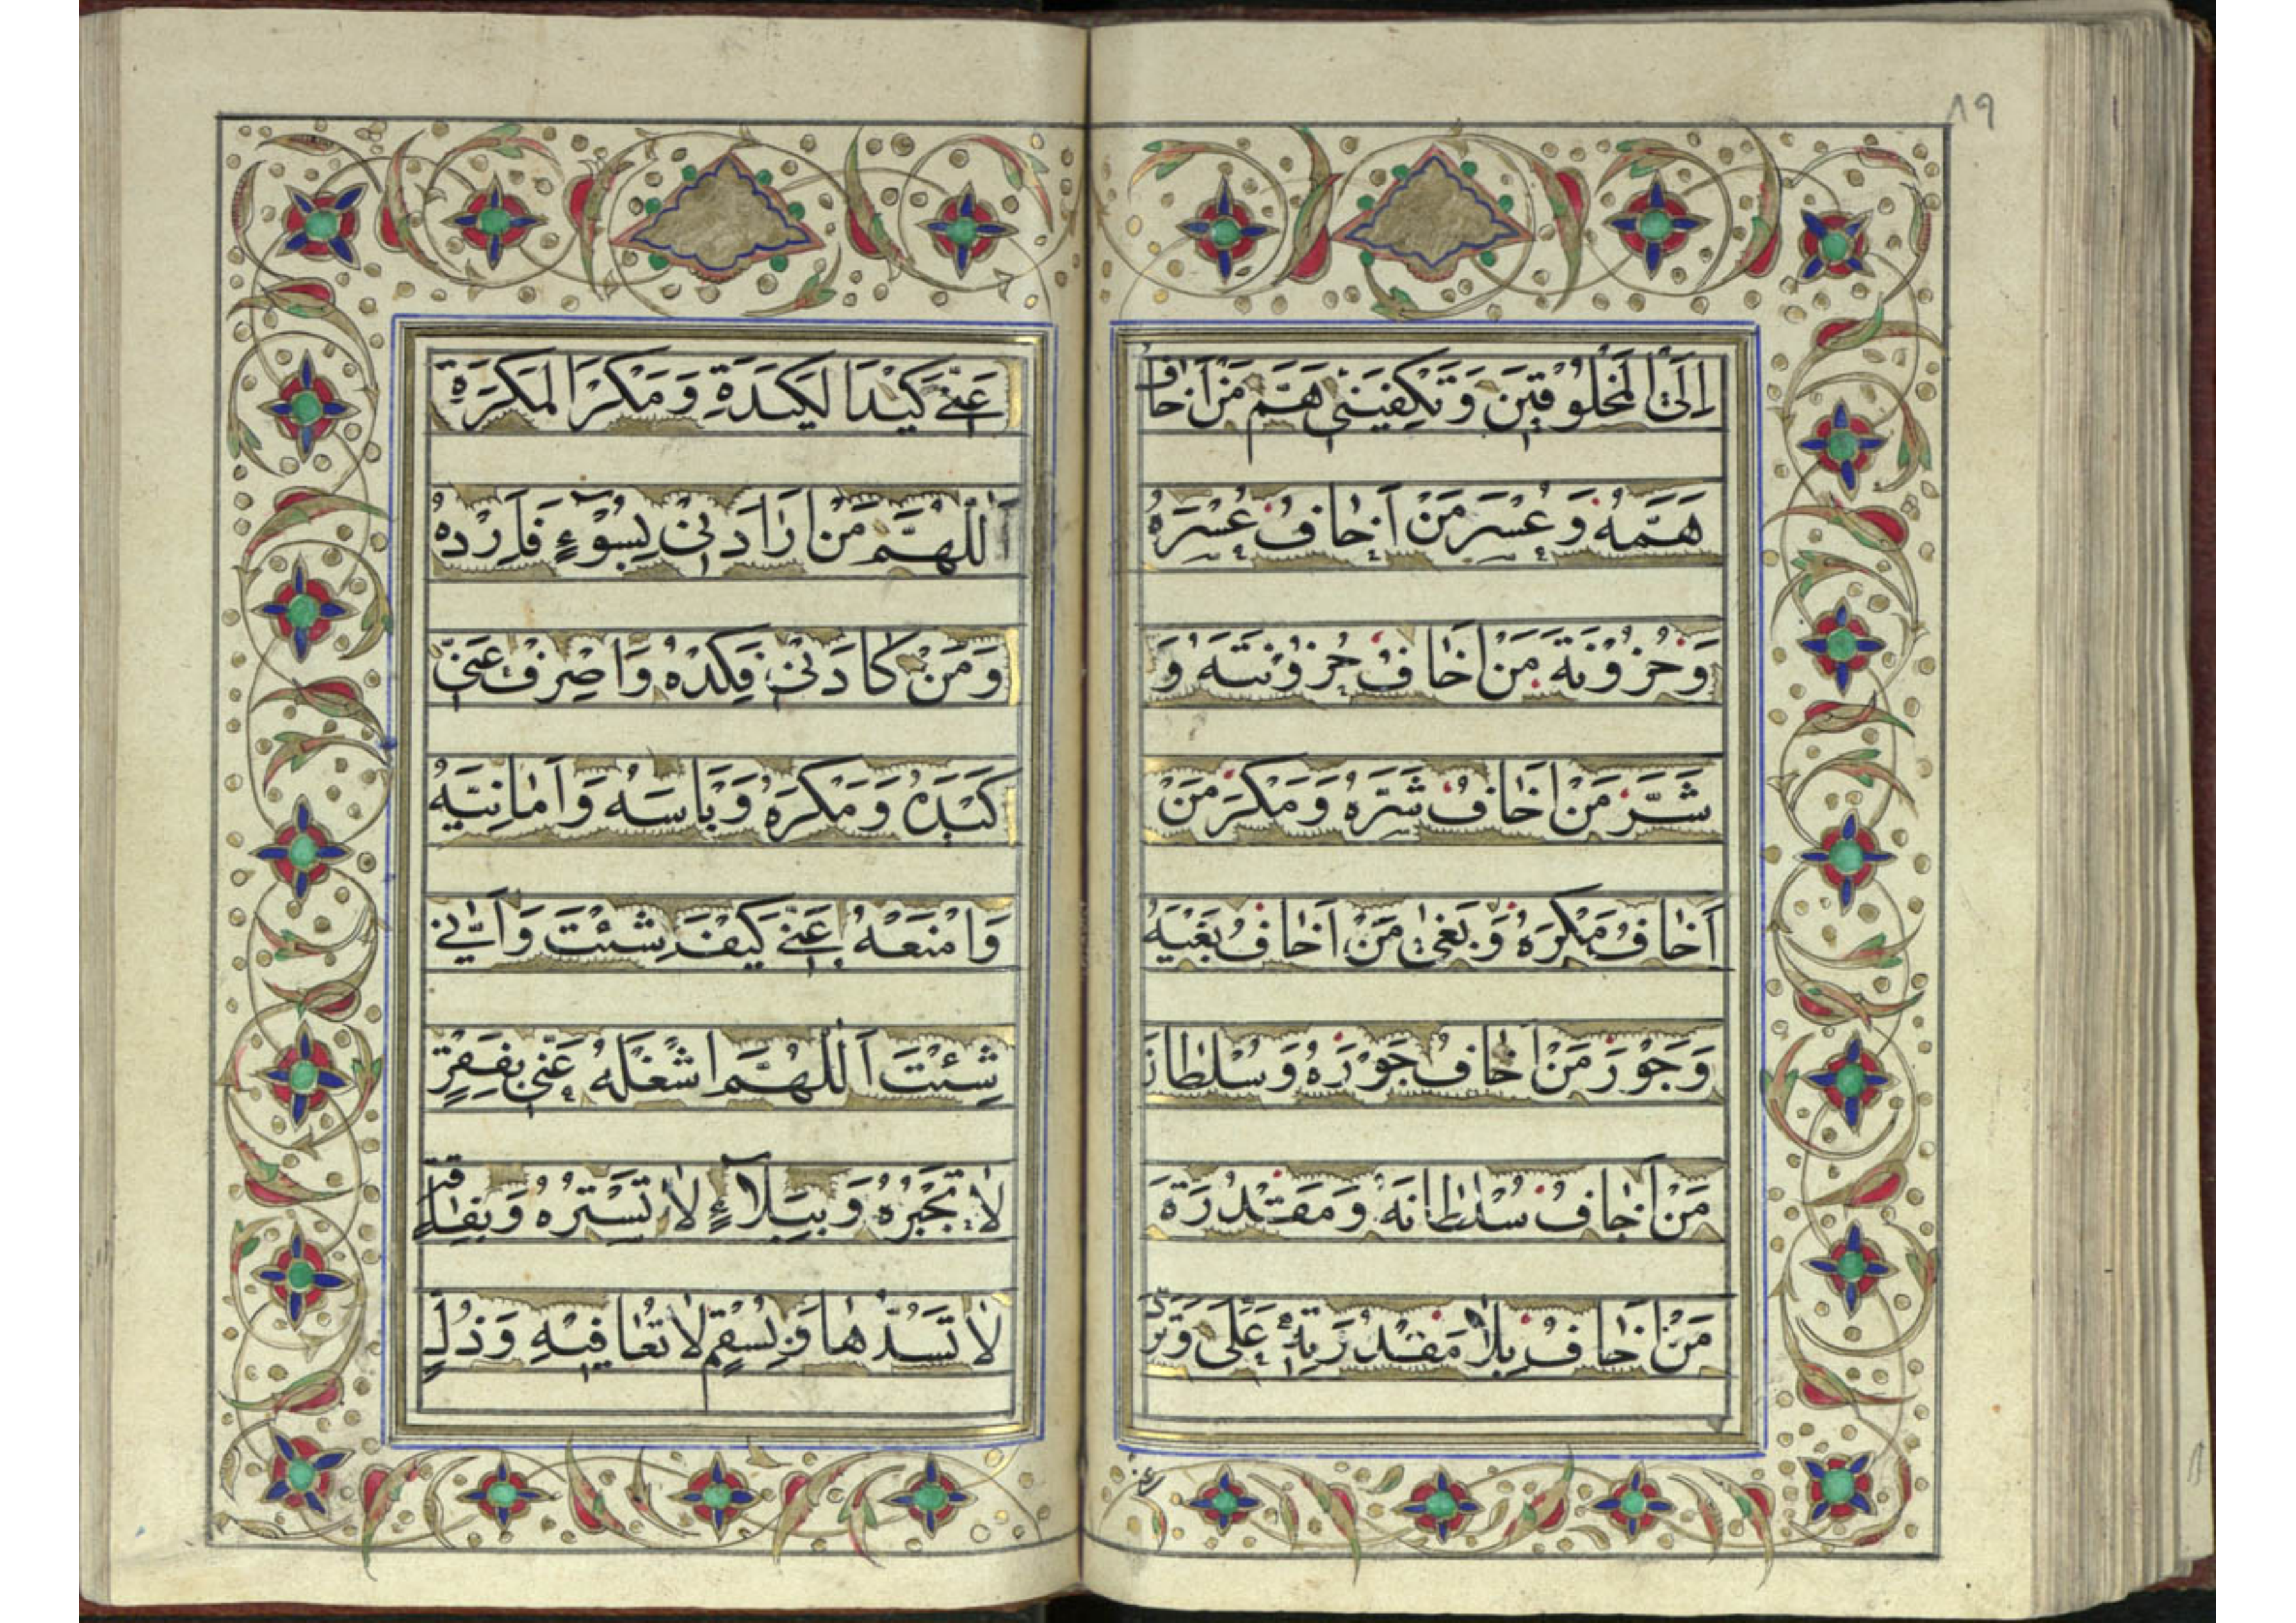 ١٩
اِلَی الْمَخْلُوقٖینَ وَتَکْفِیَنٖی هَمَّ مَنْ اَخافُ
هَمَّهُ وَ عُسْرَ مَنْ اَخافُ عُسْرَهُ
وَ حُزُوْنَةَ مَنْ اَخافُ حُزُوْنَتَهُ وَ
شَرَّ مَنْ اَخافُ شَرَّهُ وَ مَکْرَ مَنْ
اَخافُ مَکْرَهُ وَ بَغْیَ مَنْ اَخافُ بَغْیَهُ
وَ جَوْرَ مَنْ اَخافُ جَوْرَهُ وَ سُلْطانَ
مَنْ اَخافُ سُلْطانَهُ وَ مَقْدُرَةَ
مَنْ اَخافُ مَقْدُرَتِهِ عَلَیَّ وَ تَرُدَّ
عَنّٖی کَیْدَ الْکَیَدَةِ وَ مَکْرَ الْمَکَرَةِ
اَللّٰهُمَّ مَنْ اَرادَنٖی بِسُوْءٍ فَاَرِدْهُ
وَ مَنْ کادَنٖی فَکِدْهُ وَ اصْرِفْ عَنّٖی
کَیْدَهُ وَ مَکْرَهُ وَ بَاْسَهُ وَ اَمانِیَّهُ
وَ امْنَعْهُ عَنّٖی کَیْفَ شِئْتَ وَ اَنّٰی
شِئْتَ اَللّٰهُمَّ اشْغَلْهُ عَنّٖی بِفَقْرٍ
لا تَجْبُرُهُ وَ بِبَلاۤءٍ لا تَسْتُرُهُ وَ بِفاقَةٍ
لا تَسُدُّها وَ بِسُقْمٍ لا تُعافٖیهِ وَ ذُلٍّ